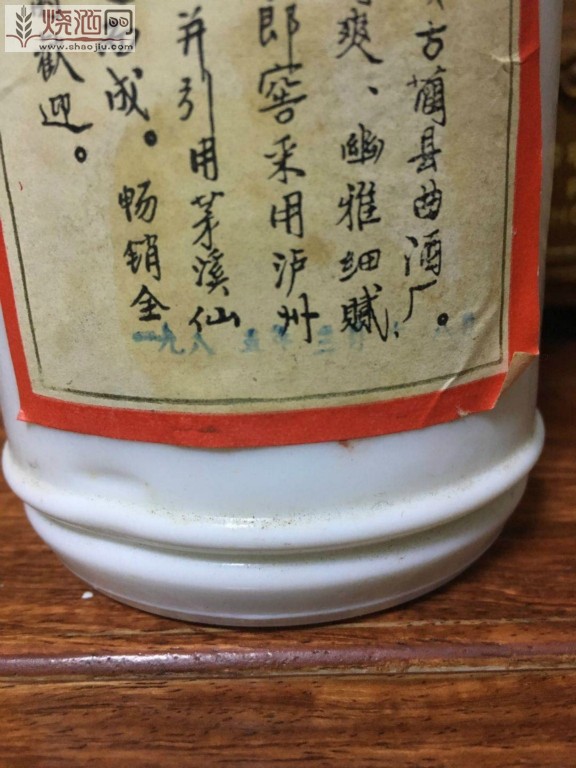 烧酒网
www.shaojiu.com
古藺县曲酒厂。
爽、幽雅细腻
郎窖采用泸州
并引用茅溪仙
成。畅销全
歡迎。
一九八五年三月